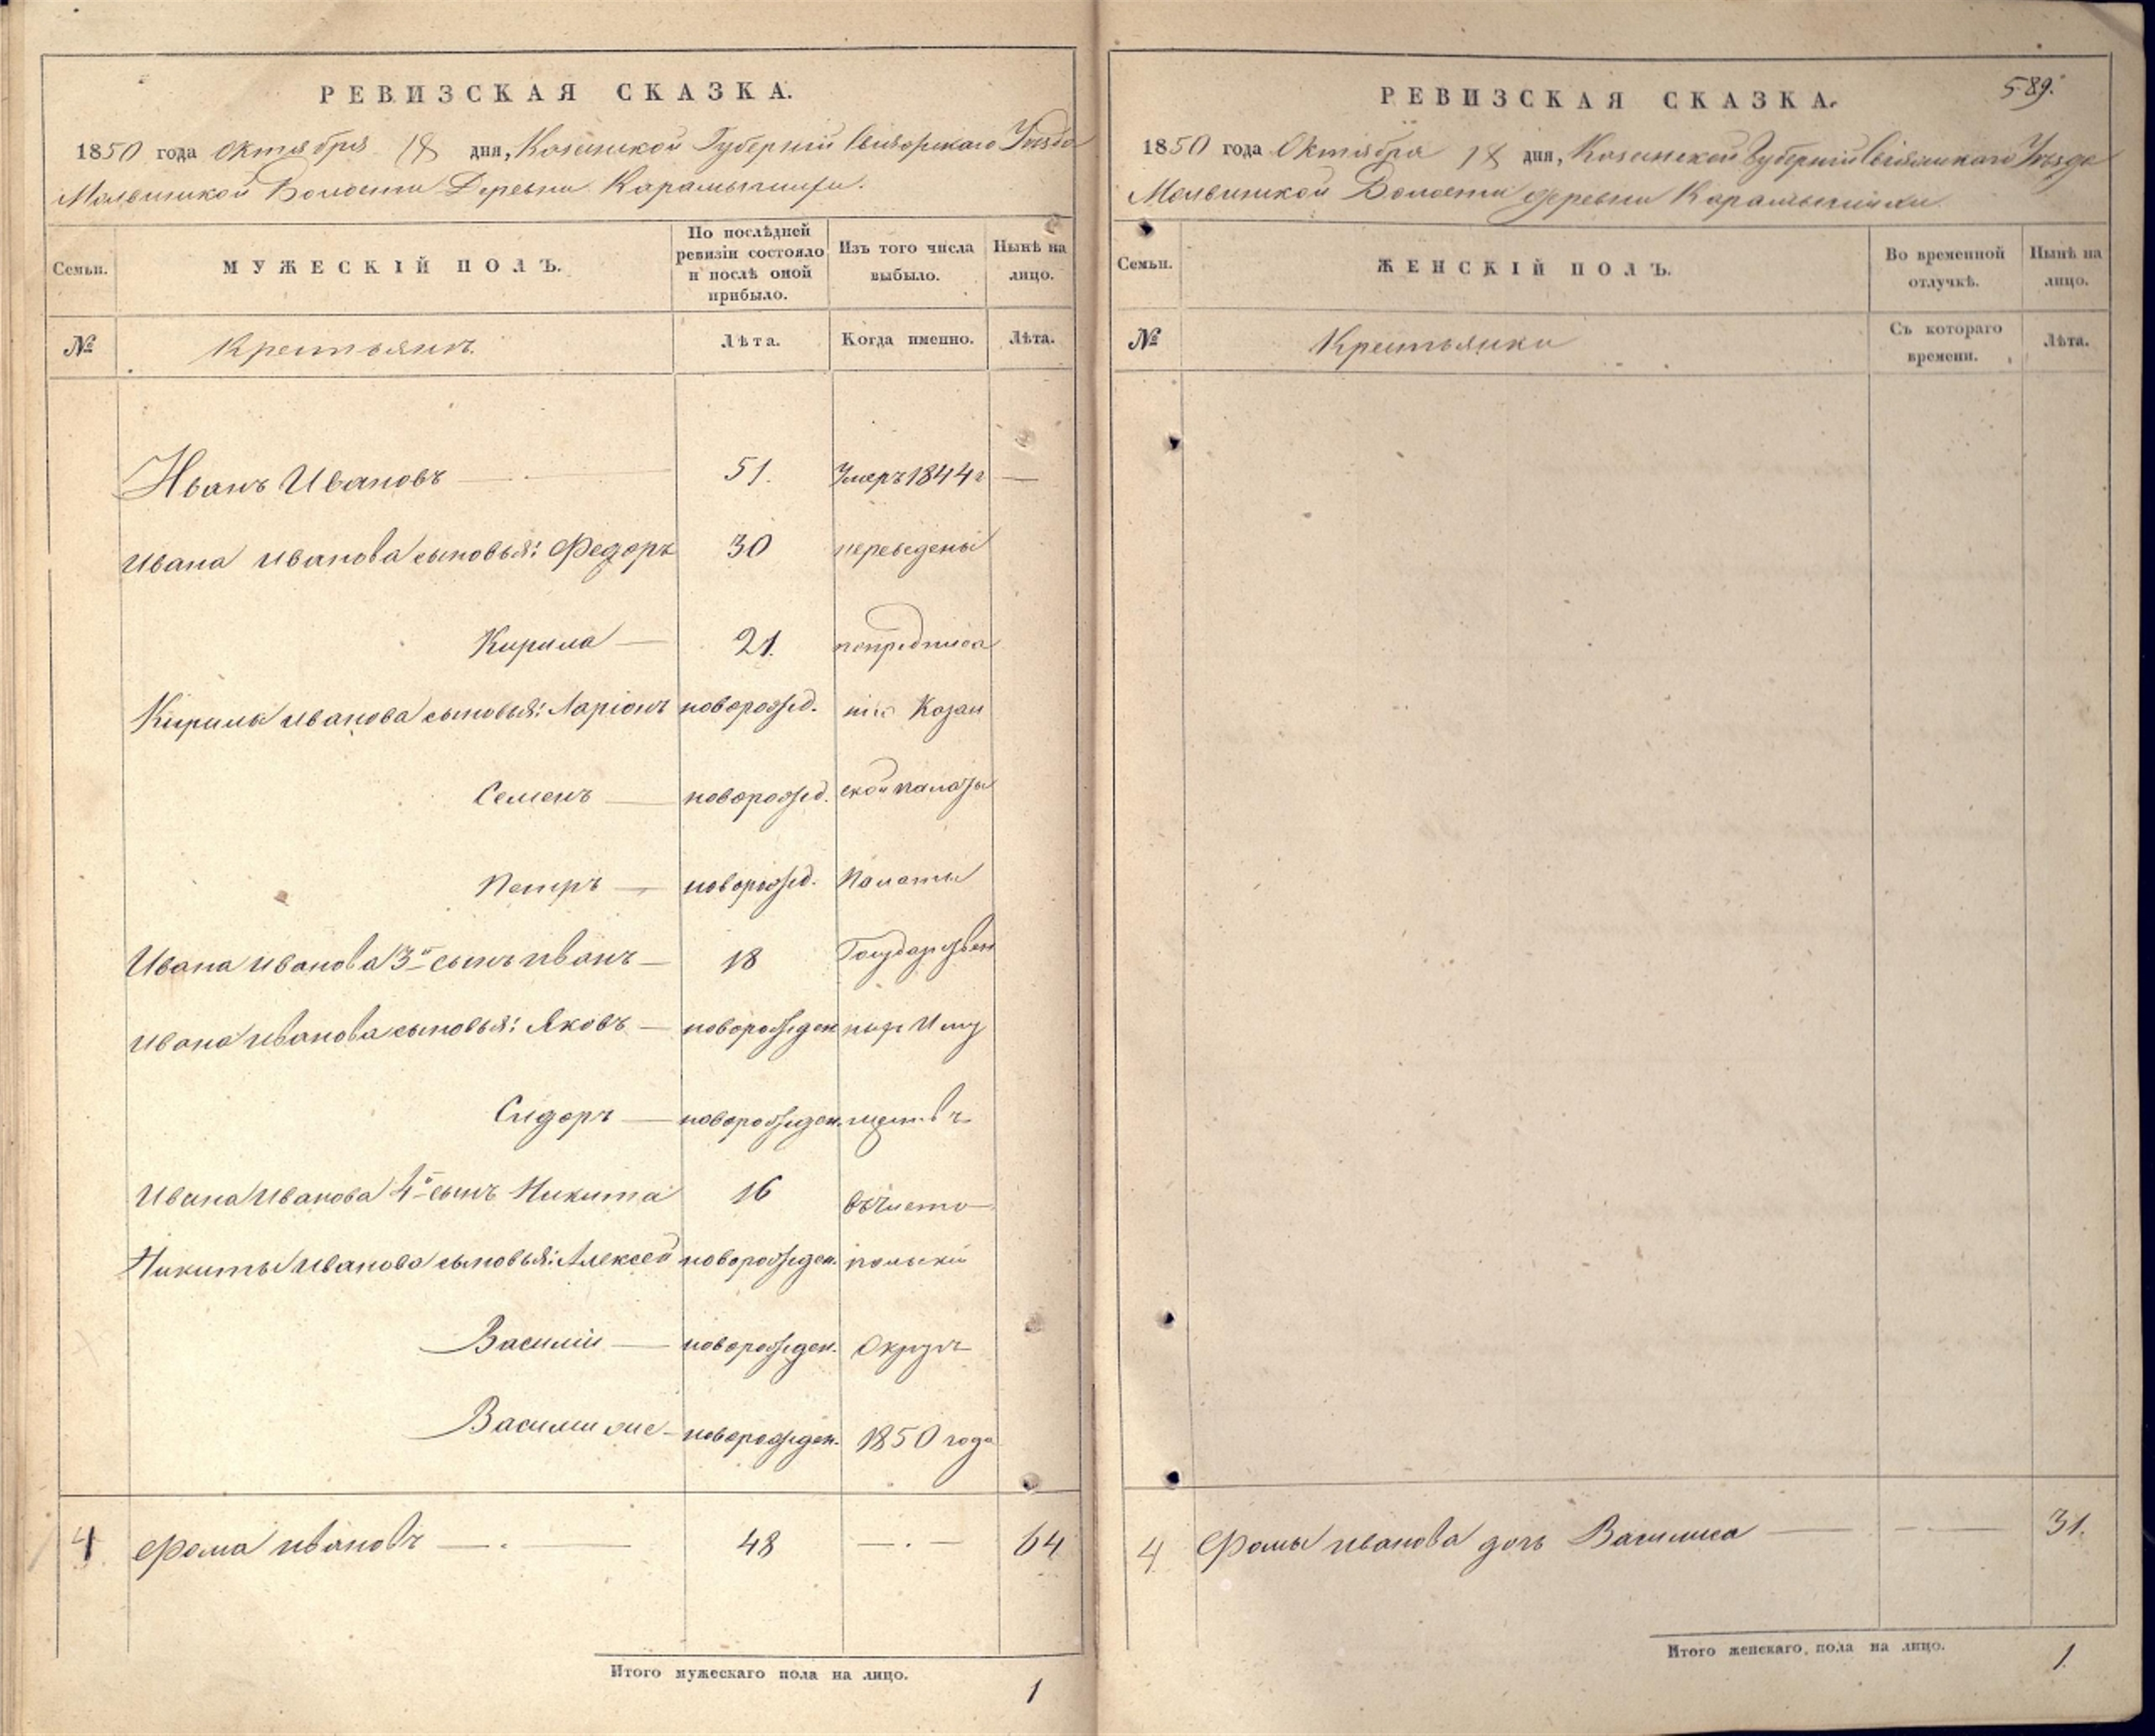 РЕВИЗСКАЯ СКАЗКА.
1850 года Октября 18 дня, Казанской Губерніи Свіяжскаго Уѣзда
Молвинской Волости Деревни Карамышихи.
Семьи.
МУЖЕСКІЙ ПОЛЪ.
По послѣдней
ревизіи состояло
и послѣ оной
прибыло.
Изъ того числа
выбыло.
Нынѣ на
лицо.
№
Крестьянъ.
Лѣта.
Когда именно.
Лѣта.
Иванъ Ивановъ — 51. Умеръ 1844 г —
Ивана Иванова сыновья: Федоръ 30 переведены
Кирила — 21. по предписа
Кирилы Иванова сыновья: Ларіонъ новорожд. нію Казан
Семенъ — новорожд. ской палаты
Петръ — новорожд. Палаты
Ивана Иванова 3й сынъ Иванъ — 18 Государствен
Ивана Иванова сыновья: Яковъ — новорожден ныхъ Иму
Сидоръ — новорожден. ществъ
Ивана Иванова 4й сынъ Никита 16 въ Чисто
Никиты Иванова сыновья: Алексей новорожден. польскій
Василій — новорожден. Округъ
Василій же — новорожден. 1850 года
4 Фома Ивановъ — . — 48 — . — 64
Итого мужескаго пола на лицо.
1
589.
РЕВИЗСКАЯ СКАЗКА.
1850 года Октября 18 дня, Казанской Губерніи Свіяжскаго Уѣзда
Молвинской Волости деревни Карамышихи
Семьи.
ЖЕНСКІЙ ПОЛЪ.
Во временной
отлучкѣ.
Нынѣ на
лицо.
№
Крестьянки
Съ котораго
времени.
Лѣта.
4 Фомы Иванова дочь Василиса — — — 31.
Итого женскаго пола на лицо.
1.